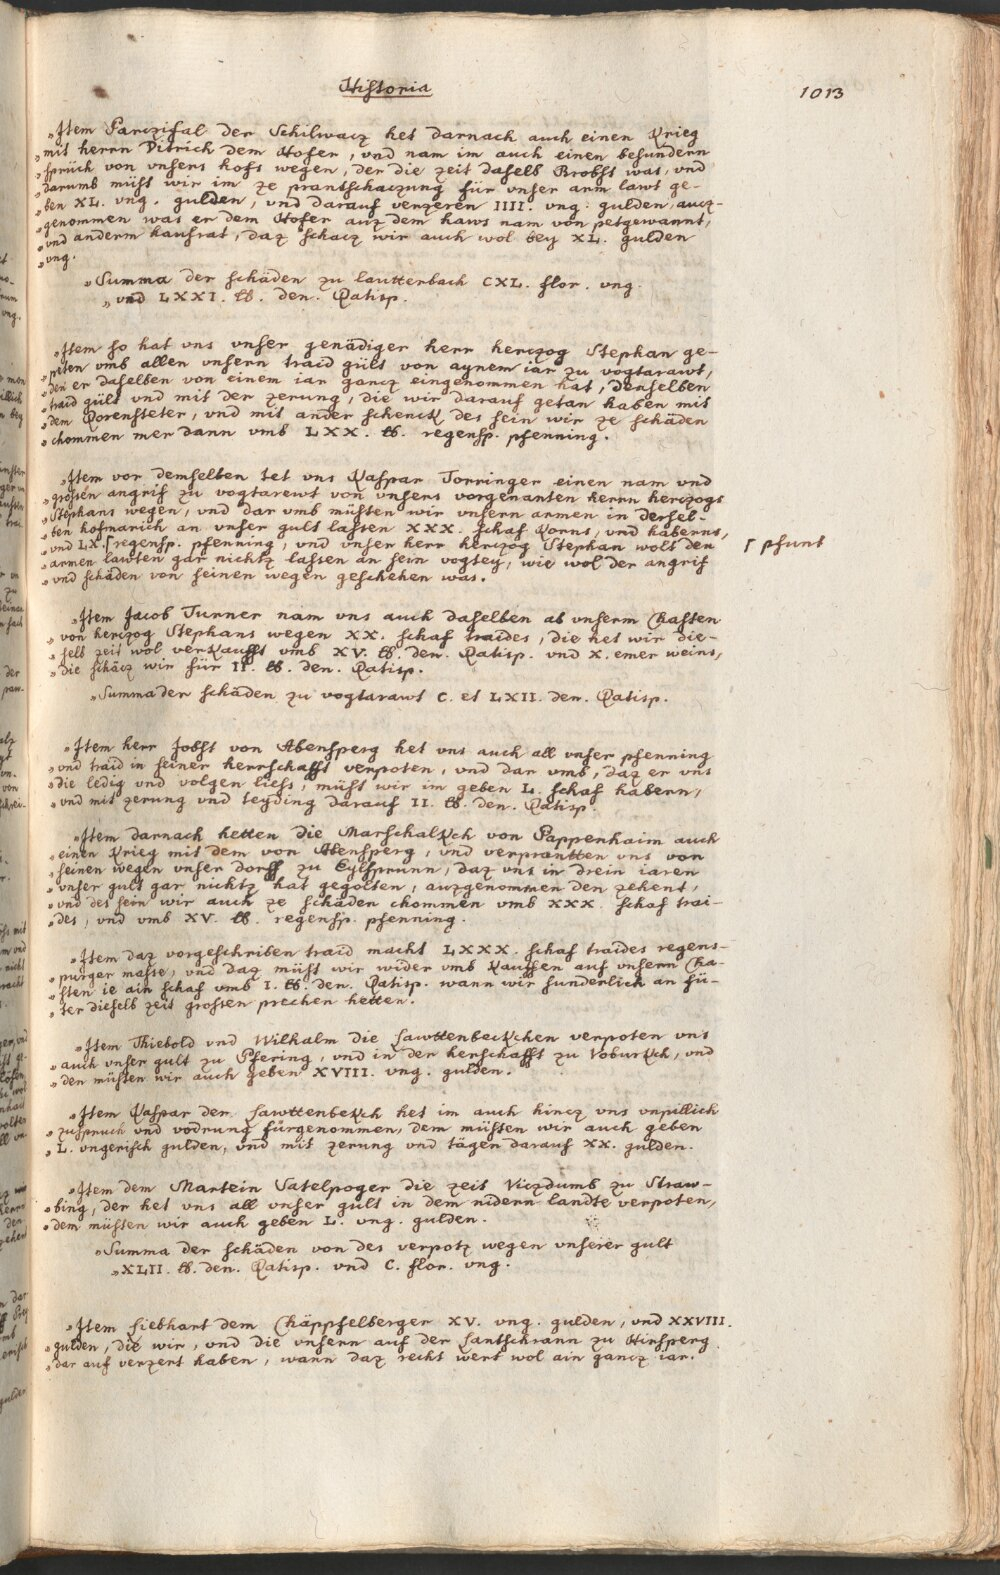 Historia
1013
„Item Parczifal der Schilwacz het darnach auch einen Krieg
„mit herrn Ditrich dem Hofer, vnd nam im auch einen besundern
„sprüch von vnsers hofs wegen, der die zeit daselb Brobst was, vnd
„darumb müst wir im ze prantschaczung für vnser arm lawt ge-
„ben XL. vng. gulden, vnd darauf verzeren IIII. vng. gulden, aucz-
„genommen was er dem Hofer auz dem haws nam von petgewannt,
„vnd anderm hausrat, daz schacz wir auch wol bey XL. gulden
„vng.
„Summa der schäden zu lautterbach CXL. flor. vng.
„vnd LXXI. ℔. den. Ratisp.
„Item so hat vns vnser genädiger herr herczog Stephan ge-
„peten vmb allen vnsern traid gült von aynem iar zu vogtarawt,
„den er daselben von einem iar gancz eingenommen hat, denselben
„traid gült vnd mit der zerung, die wir darauf getan haben mit
„dem Rorensteter, vnd mit ander schenck des sein wir ze schäden
„chommen mer dann vmb LXX. ℔. regensp. pfenning.
„Item vor demselben tet vns Kaspar Torringer einen nam vnd
„grossen angrif zu vogtarewt von vnsers vorgenanten herrn herczogs
„Stephans wegen, vnd dar vmb müsten wir vnsern armen in dersel-
„ben hofmarich an vnser gult lassen XXX. schaf Korns, vnd haberns,
„vnd LX. ⌈ regensp. pfenning, vnd vnser herr herczog Stephan wolt den
⌈ pfunt
„armen lawten gar nichtz lassen an sein vogtey, wie wol der angrif
„vnd schäden von seinen wegen geschehen was.
„Item Jacob Turner nam vns auch daselben ab vnserm Chasten
„von herczog Stephans wegen XX. schaf traides, die het wir die-
„selb zeit wol verkaufft vmb XV. ℔. den. Ratisp. vnd X. emer weins,
„die schäcz wir für II. ℔. den. Ratisp.
„Summa der schäden zu vogtarawt C. et LXII. den. Ratisp.
„Item herr Jobst von Abensperg het vns auch all vnser pfenning
„vnd traid in seiner herrschafft verpoten, vnd dar vmb, daz er vns
„die ledig vnd volgen liess, müst wir im geben L. schaf habern,
„vnd mit zerung vnd teyding darauf II. ℔. den. Ratisp.
„Item darnach hetten die Marschalkch von Pappenhaim auch
„einen Krieg mit dem von Abensperg, vnd verprantten vns von
„seinen wegen vnser dorff zu Eylsprunn, daz vns in drein iaren
„vnser gult gar nichtz hat gegolten, auzgenommen den zehent,
„vnd des sein wir auch ze schäden chommen vmb XXX. schaf trai-
„des, vnd vmb XV. ℔. regensp. pfenning.
„Item daz vorgeschriben traid macht LXXX. schaf traides regens-
„purger masse, vnd daz müst wir wider vmb kauffen auf vnsern Cha-
„sten ie ain schaf vmb I. ℔. den. Ratisp. wann wir sunderlich an fü-
„ter dieselb zeit grossen prechen hetten.
„Item Thiebold vnd Wilhalm die Lawttenbeckchen verpoten vns
„auch vnser gult zu Pfering, vnd in der herschafft zu Voburkch, vnd
„den müsten wir auch geben XVIII. vng. gulden.
„Item Kaspar der Lawttenbekch het im auch hincz vns vnpillich
„zuspruch vnd vodrung fürgenommen, dem müsten wir auch geben
„L. vngerisch gulden, vnd mit zerung vnd tägen darauf XX. gulden.
„Item dem Martein Satelpoger die zeit Viczdumb zu Straw-
„bing, der het vns all vnser gult in dem nidern landte verpoten,
„dem müsten wir auch geben L. vng. gulden.
„Summa der schäden von des verpotz wegen vnserer gult
„XLII. ℔. den. Ratisp. vnd C. flor. vng.
„Item Liebhart dem Chäppfelberger XV. vng. gulden, vnd XXVIII.
„gulden, die wir, vnd die vnsern auf der Lantschrann zu Hirsperg
„dar auf verzert haben, wann daz recht wert wol ain gancz iar.